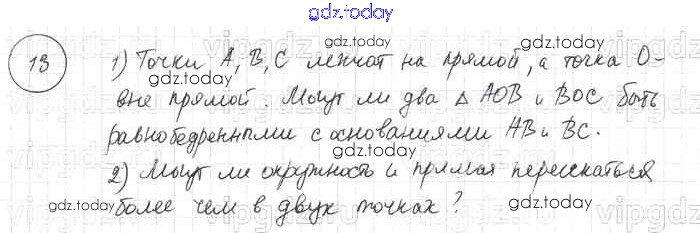 gdz.today
13
1) Точки A, B, C лежат на прямой, а точка O-
вне прямой. Могут ли два △ AOB и BOC быть
равнобедренными с основаниями AB и BC.
2) Могут ли окружность и прямая пересекаться
более чем в двух точках?
gdz.today
gdz.today
gdz.today
gdz.today
gdz.today
gdz.today
gdz.today
gdz.today